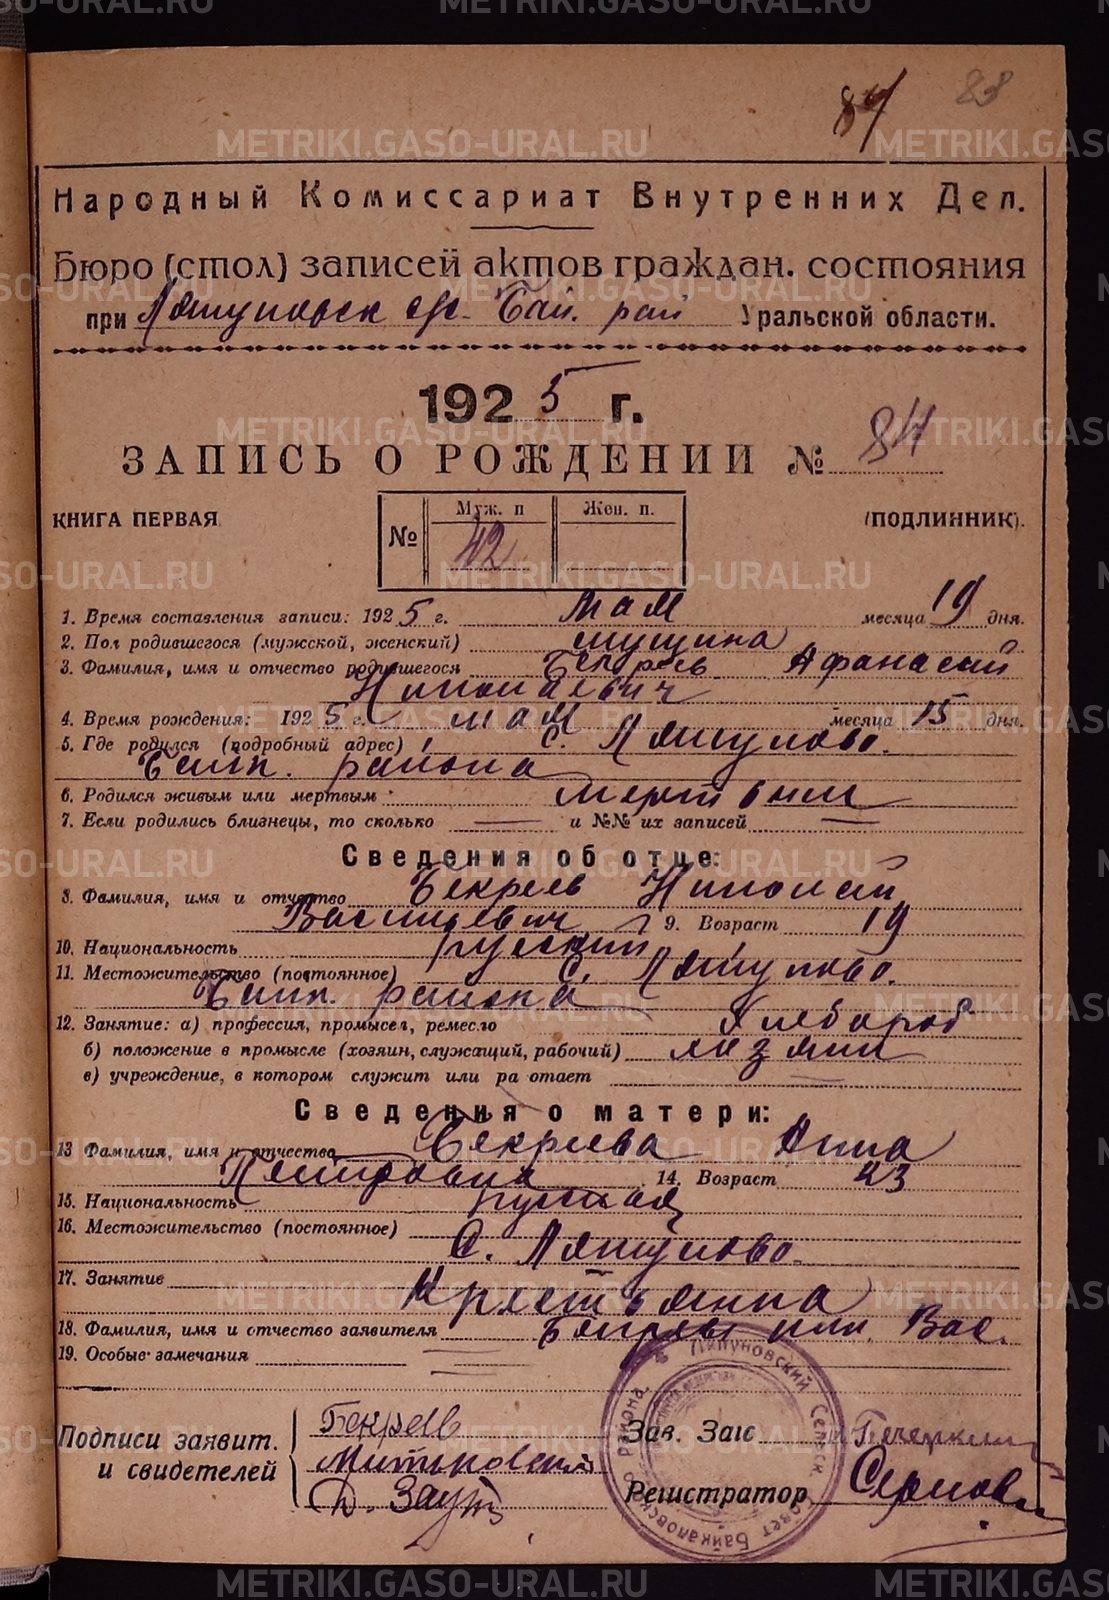 84 88
Народный Комиссариат Внутренних Дел.
Бюро (стол) записей актов граждан. состояния
при Ляпуновск с/с. Бай. рай Уральской области.
1925 г.
ЗАПИСЬ О РОЖДЕНИИ № 84
КНИГА ПЕРВАЯ (ПОДЛИННИК).
№ Муж. п 42 Жен. п.
1. Время составления записи: 1925 г. мая месяца 19 дня.
2. Пол родившегося (мужской, женский) мущина
3. Фамилия, имя и отчество родившегося Бекрев Афанасий
Николаевич
4. Время рождения: 1925 г. мая месяца 15 дня.
5. Где родился (подробный адрес) с. Ляпуново.
Байк. района
6. Родился живым или мертвым мертвым
7. Если родились близнецы, то сколько — и №№ их записей —
Сведения об отце:
8. Фамилия, имя и отчество Бекреев Николай
Васильевич 9. Возраст 19
10. Национальность русский
11. Местожительство (постоянное) с. Ляпуново.
Байк. района
12. Занятие: а) профессия, промысел, ремесло Хлебороб
б) положение в промысле (хозяин, служащий, рабочий) хозяин
в) учреждение, в котором служит или ра отает —
Сведения о матери:
13 Фамилия, имя и отчество Бекреева Анна
Петровна 14. Возраст 23
15. Национальность русская
16. Местожительство (постоянное)
С. Ляпуново.
17. Занятие
Крестьянка
18. Фамилия, имя и отчество заявителя Вас.
19. Особые замечания —
Подписи заявит.
и свидетелей
Бекреев
Зав. Загс
Регистратор
Ляпуновский Сельск. Совет Байкаловского района
METRIKI.GASO-URAL.RU